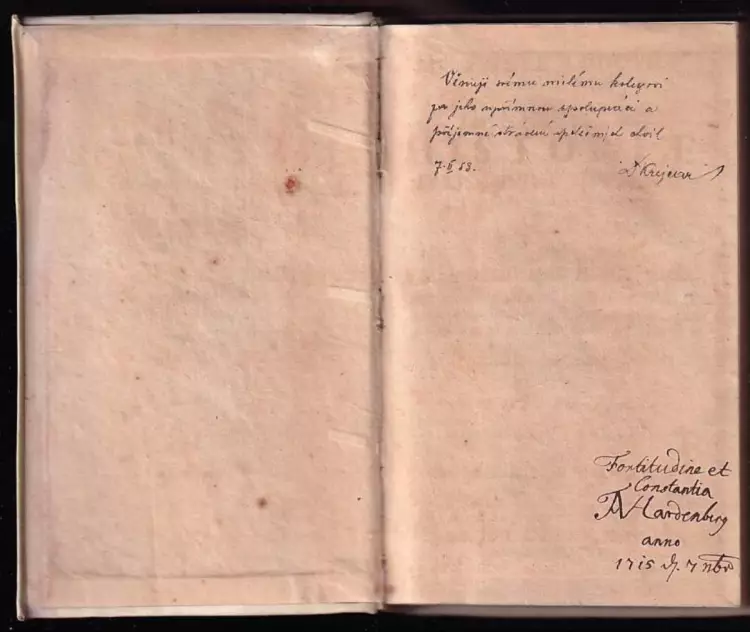 Věnuji svému milému kolegovi
za jeho upřímnou spolupráci a
příjemné strávení společných chvil
7. II 53.
Krejčar
Fortitudine et
Constantia
Hardenberg
anno
1715 d. 7 9br